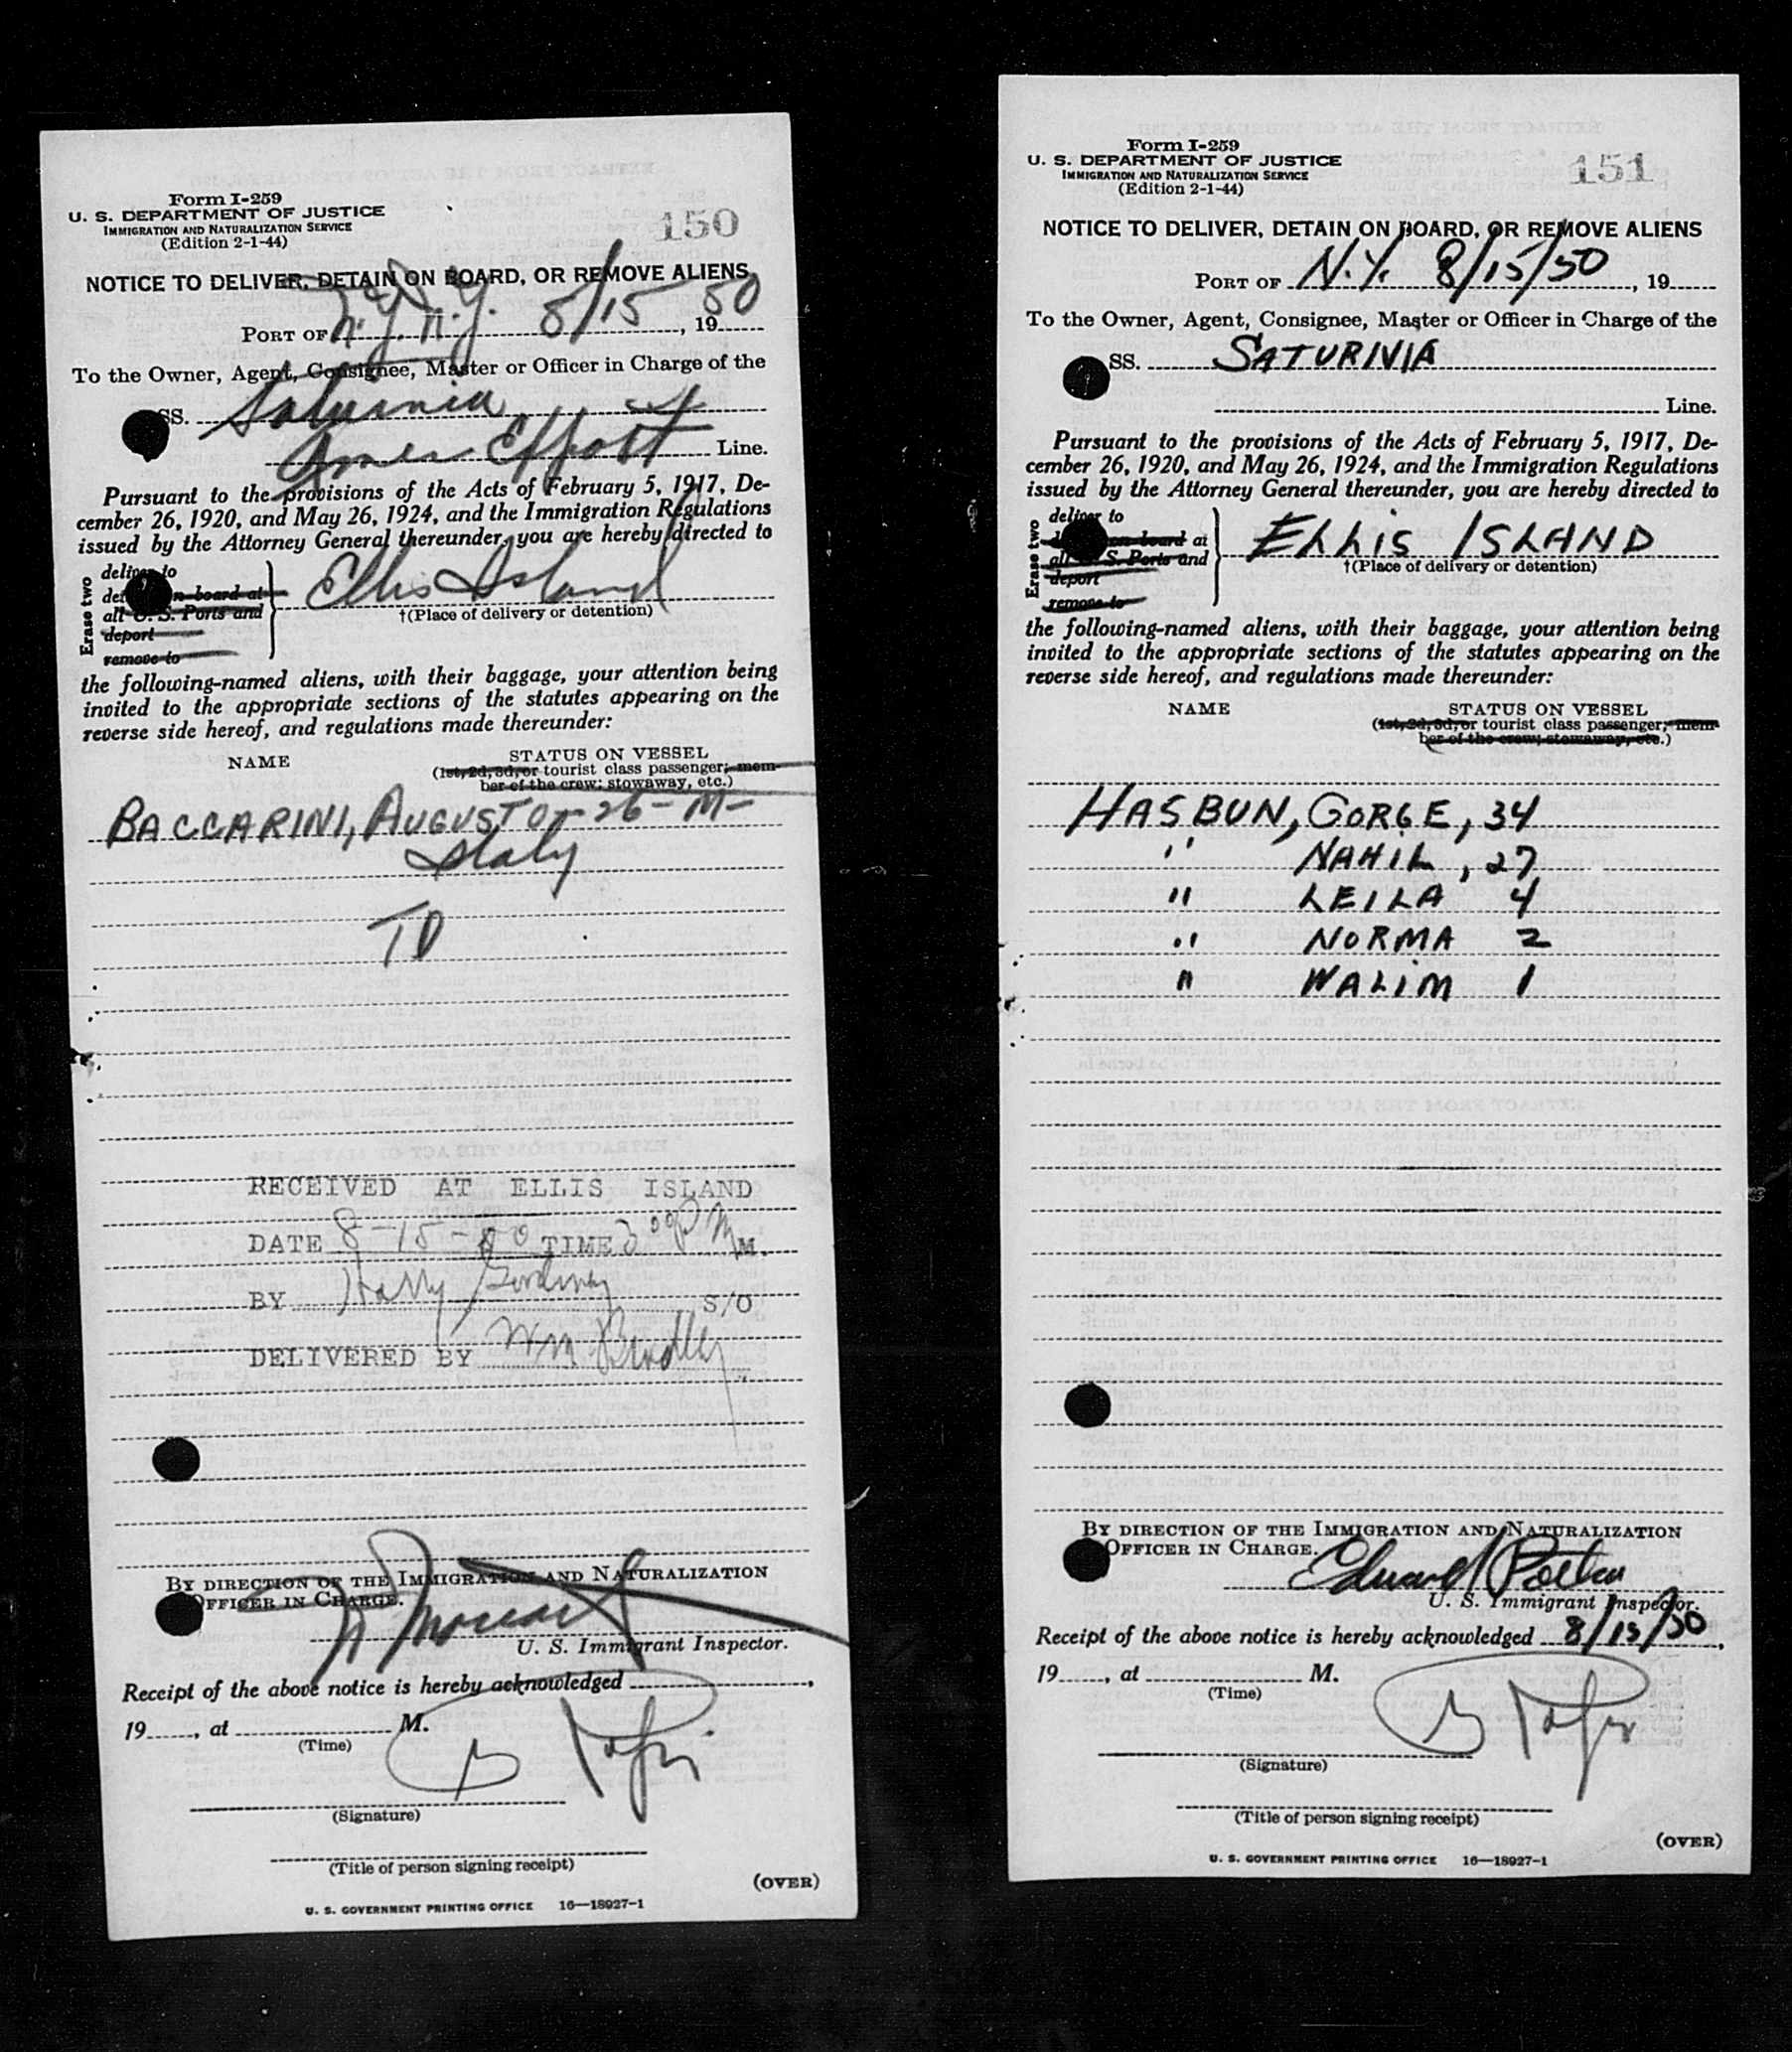 Form I-259
U. S. DEPARTMENT OF JUSTICE
IMMIGRATION AND NATURALIZATION SERVICE
(Edition 2-1-44)
150
NOTICE TO DELIVER, DETAIN ON BOARD, OR REMOVE ALIENS
PORT OF N.Y. N.Y. 8/15, 1950
To the Owner, Agent, Consignee, Master or Officer in Charge of the
SS. Saturnia
Amer Export Line.
Pursuant to the provisions of the Acts of February 5, 1917, De-
cember 26, 1920, and May 26, 1924, and the Immigration Regulations
issued by the Attorney General thereunder, you are hereby directed to
Erase two
deliver to
detain on board at
all U. S. Ports and
deport
remove to
Ellis Island
†(Place of delivery or detention)
the following-named aliens, with their baggage, your attention being
invited to the appropriate sections of the statutes appearing on the
reverse side hereof, and regulations made thereunder:
NAME STATUS ON VESSEL
(1st, 2d, 3d, or tourist class passenger; mem-
ber of the crew; stowaway, etc.)
BACCARINI, AUGUSTO - 26 - M -
Italy
TD
RECEIVED AT ELLIS ISLAND
DATE 8-15-50 TIME 3 00 P M M.
BY Harry S/O
DELIVERED BY Wm
BY DIRECTION OF THE IMMIGRATION AND NATURALIZATION
OFFICER IN CHARGE.
U. S. Immigrant Inspector.
Receipt of the above notice is hereby acknowledged ,
19 , at M.
(Time)
(Signature)
(Title of person signing receipt)
(OVER)
U. S. GOVERNMENT PRINTING OFFICE 16—18927-1
Form I-259
U. S. DEPARTMENT OF JUSTICE
IMMIGRATION AND NATURALIZATION SERVICE
(Edition 2-1-44)
151
NOTICE TO DELIVER, DETAIN ON BOARD, OR REMOVE ALIENS
PORT OF N.Y. 8/15/50, 19
To the Owner, Agent, Consignee, Master or Officer in Charge of the
SS. SATURIVIA
Line.
Pursuant to the provisions of the Acts of February 5, 1917, De-
cember 26, 1920, and May 26, 1924, and the Immigration Regulations
issued by the Attorney General thereunder, you are hereby directed to
Erase two
deliver to
on board at
all U. S. Ports and
deport
remove to
ELLIS ISLAND
†(Place of delivery or detention)
the following-named aliens, with their baggage, your attention being
invited to the appropriate sections of the statutes appearing on the
reverse side hereof, and regulations made thereunder:
NAME STATUS ON VESSEL
(1st, 2d, 3d, or tourist class passenger; mem-
ber of the crew; stowaway, etc.)
HASBUN, GORGE, 34
" NAHIL, 27
" LEILA 4
" NORMA 2
" WALIM 1
BY DIRECTION OF THE IMMIGRATION AND NATURALIZATION
OFFICER IN CHARGE.
Edward
U. S. Immigrant Inspector.
Receipt of the above notice is hereby acknowledged 8/15/50,
19 , at M.
(Time)
(Signature)
(Title of person signing receipt)
(OVER)
U. S. GOVERNMENT PRINTING OFFICE 16—18927-1